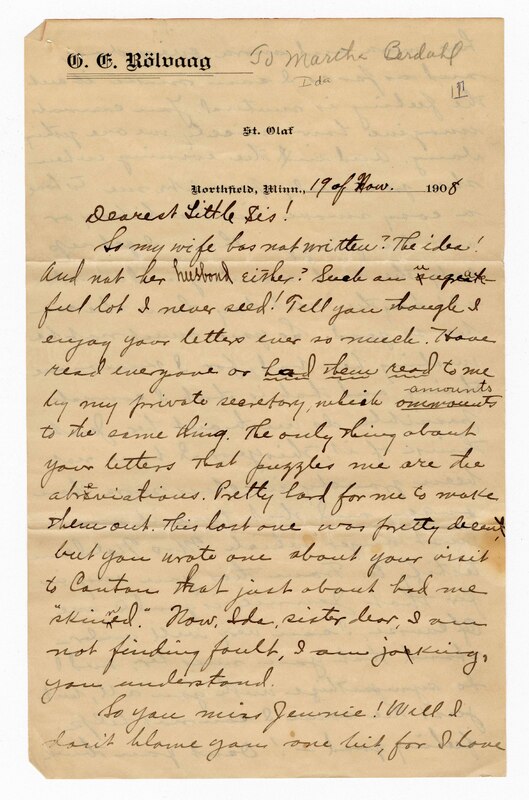 O. E. Rölvaag To Martha Berdahl
Ida
St. Olaf
Northfield, Minn., 19 of Nov. 1908
Dearest Little Sis!
So my wife has not written? The idea!
And not her husband either? Such an
ful lot I never seed! Tell you though I
enjoy your letters ever so much. Have
read everyone or had them read to me
by my private secretary, which amounts
to the same thing. The only thing about
your letters that puzzles me are the
abreviations. Pretty hard for me to make
them out. This last one was pretty decent,
but you wrote one about your visit
to Canton that just about had me
"skinned." Now, Ida, sister dear, I am
not finding fault, I am jocking,
you understand.
So you miss Jennie! Well I
don't blame you one bit, for I have